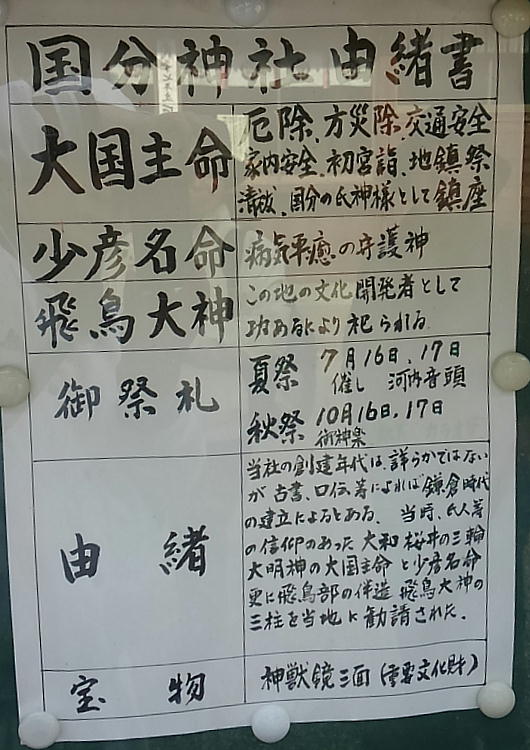 国分神社由緒書
大国主命
厄除、方災除、交通安全
家内安全、初宮詣、地鎮祭
清祓、国分の氏神様として鎮座
少彦名命
病気平癒の守護神
飛鳥大神
この地の文化開発者として
功あるにより祀られる
御祭礼
夏祭 7月16日、17日
催し 河内音頭
秋祭 10月16日、17日
御神楽
由緒
当社の創建年代は、詳らかではない
が古書、口伝等によれば鎌倉時代
の建立によるとある。当時、氏人等
の信仰のあった大和桜井の三輪
大明神の大国主命と少彦名命
更に飛鳥部の伴造飛鳥大神の
三柱を当地に勧請された。
宝物
神獣鏡三面(重要文化財)